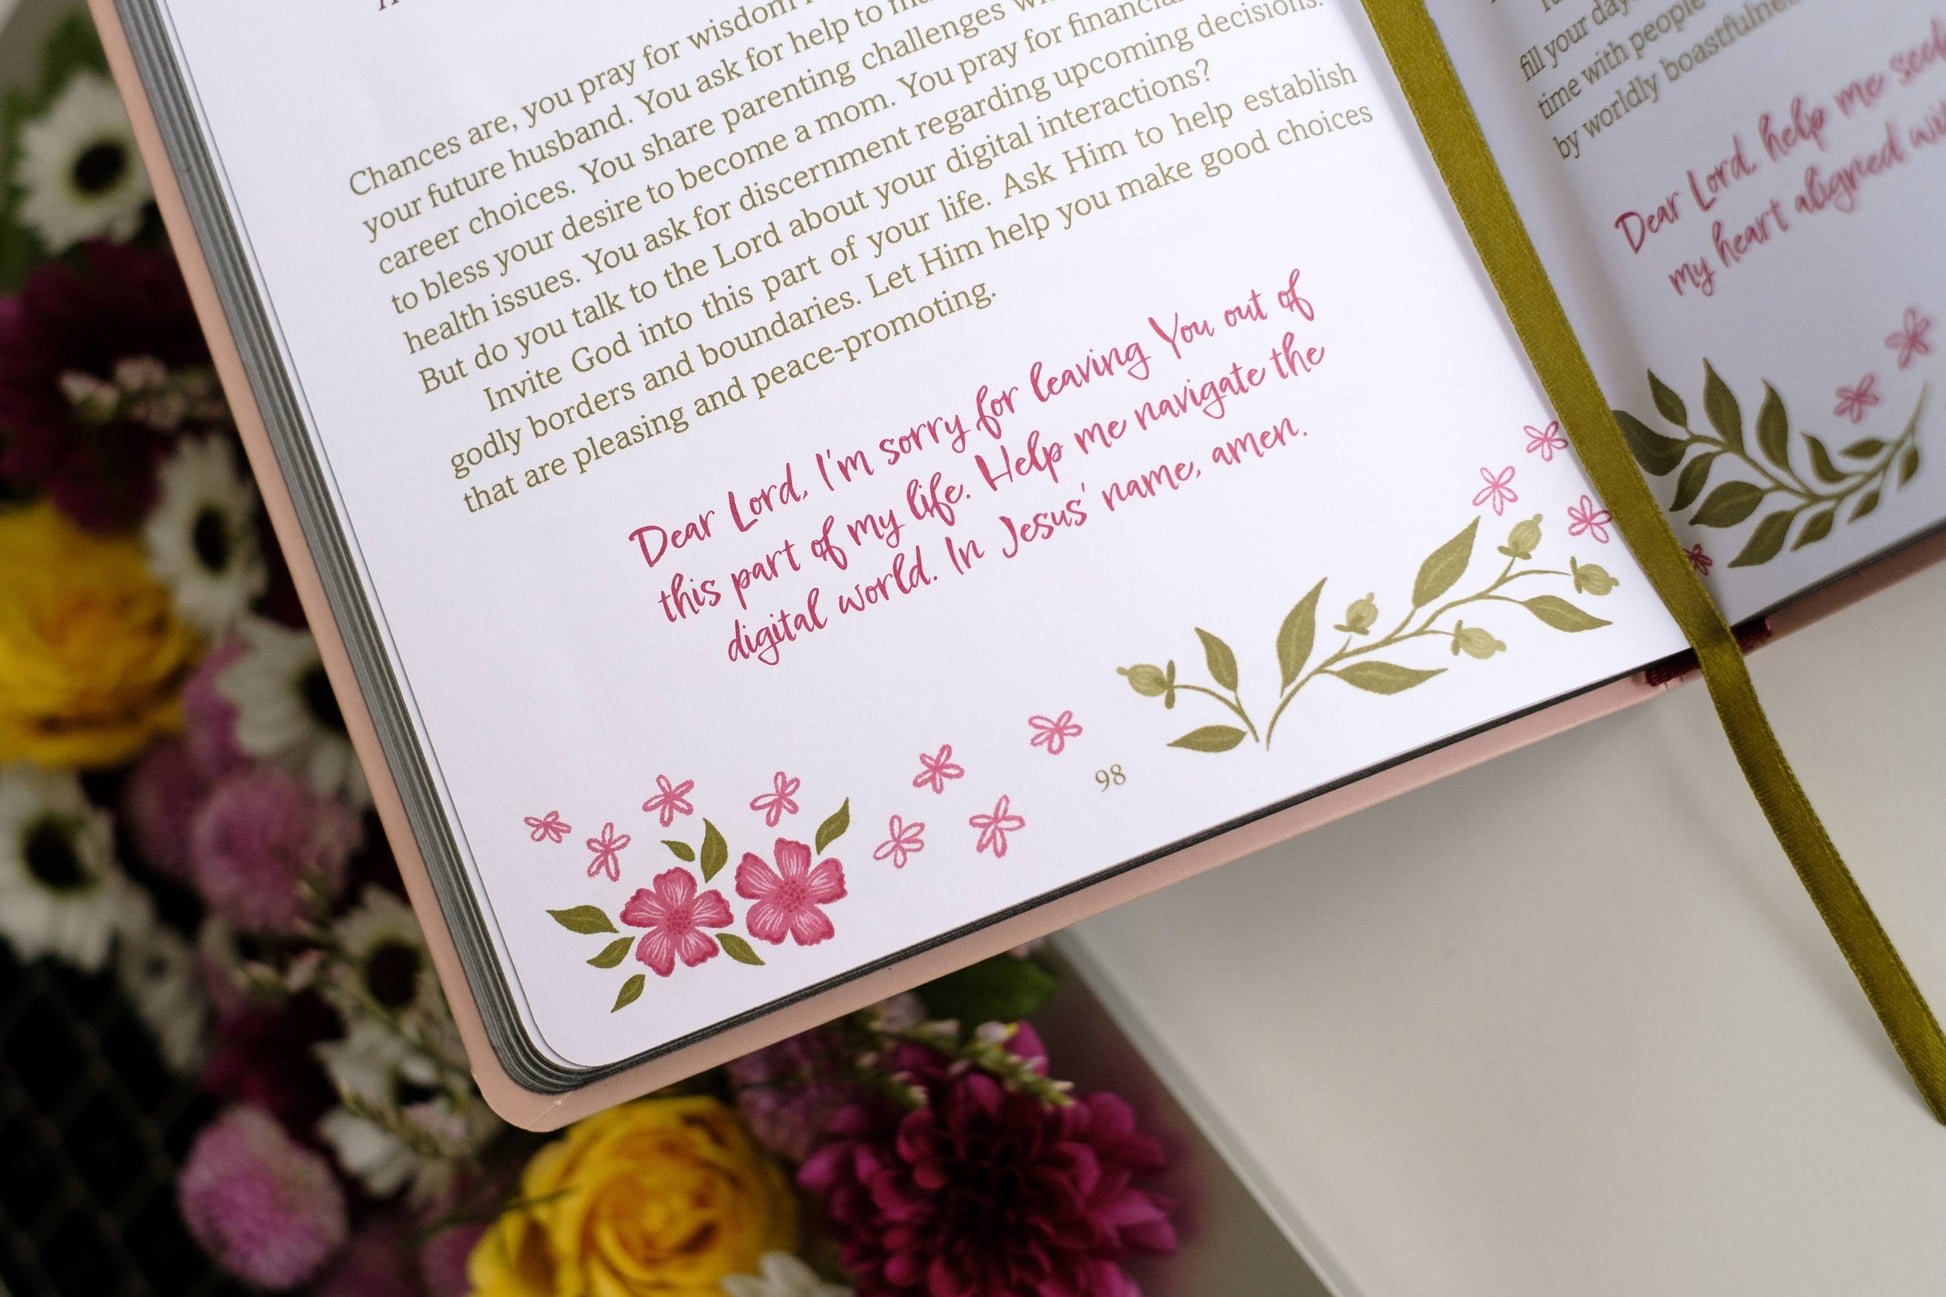 Chances are, you pray for wisdom
your future husband. You ask for help to
career choices. You share parenting challenges
to bless your desire to become a mom. You pray for financial
health issues. You ask for discernment regarding upcoming decisions.
But do you talk to the Lord about your digital interactions?
Invite God into this part of your life. Ask Him to help establish
godly borders and boundaries. Let Him help you make good choices
that are pleasing and peace-promoting.
Dear Lord, I'm sorry for leaving You out of
this part of my life. Help me navigate the
digital world. In Jesus' name, amen.
98
fill your
time with people
by worldly
Dear Lord, help me
my heart aligned